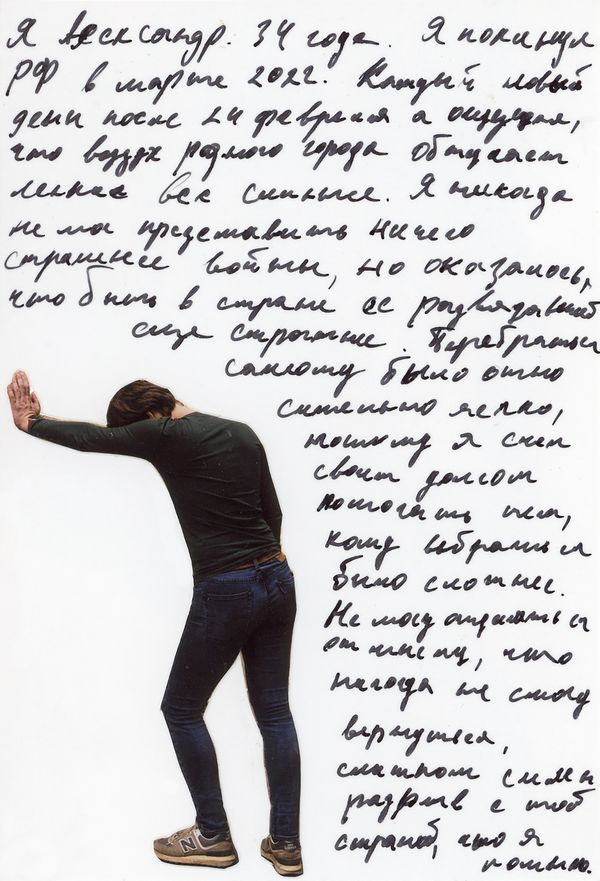 Я Александр. 34 года. Я покинул
РФ в марте 2022. Каждый новый
день после 24 февраля я ощущал,
что воздух родного города обжигает
легкие все сильнее. Я никогда
не мог представить ничего
страшнее войны, но оказалось,
что быть в стране ее развязавшей
еще страшнее. Перебраться
самому было отно
сительно легко,
потому я счел
своим долгом
помогать тем,
кому выбраться
было сложнее.
Не могу отделаться
от мысли, что
никогда не смогу
вернуться,
слишком силен
разрыв с той
страной, что я
помню.
N